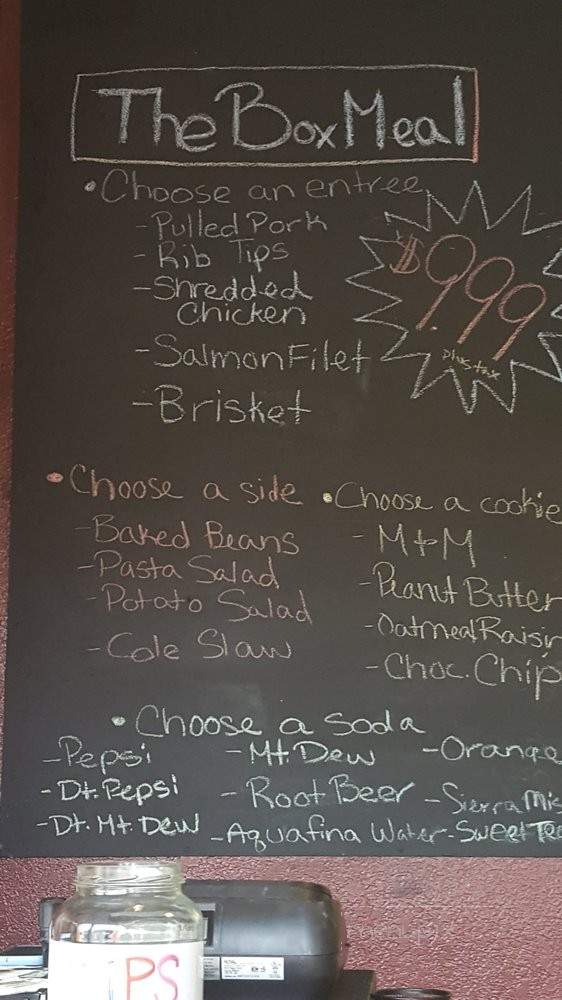 The Box Meal
• Choose an entree
- Pulled Pork
- Rib Tips
- Shredded
Chicken
- Salmon Filet
- Brisket
$9.99
plus tax
• Choose a side
- Baked Beans
- Pasta Salad
- Potato Salad
- Cole Slaw
• Choose a cookie
- M+M
- Peanut Butter
- Oatmeal Raisin
- Choc. Chip
• Choose a soda
- Pepsi - Mt. Dew - Orange
- Dt. Pepsi - Root Beer - Sierra Mis
- Dt. Mt. Dew - Aquafina Water - Sweet Tea
TIPS